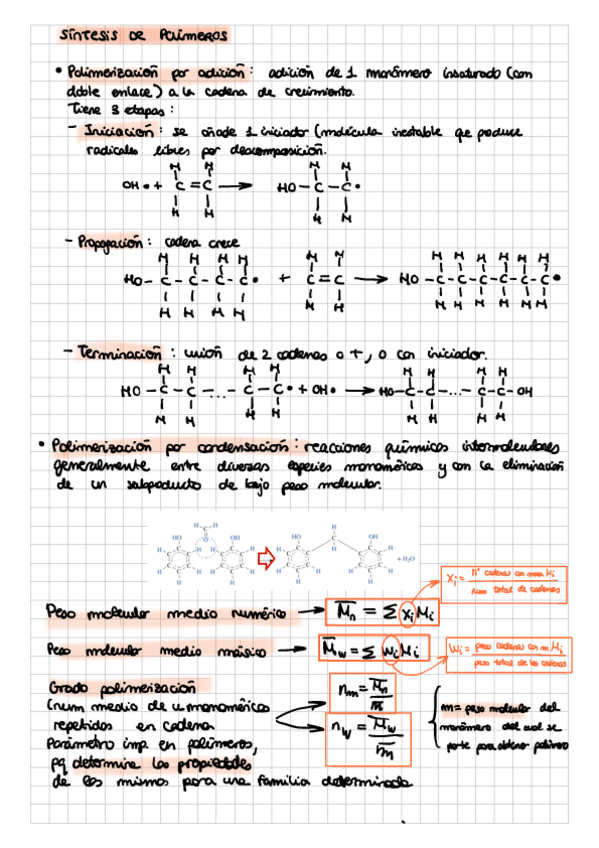 SÍNTESIS DE POLÍMEROS
• Polimerización por adición: adición de 1 monómero insaturado (con
doble enlace) a la cadena de crecimiento.
Tiene 3 etapas:
- Iniciación: se añade 1 iniciador (molécula inestable que produce
radicales libres por descomposición.
H H H H
OH• + C = C → HO - C - C •
H H H H
- Propagación: cadena crece
H H H H H H H H H H H H
HO - C - C - C - C • + C = C → HO - C - C - C - C - C - C •
H H H H H H H H H H H H
- Terminación: unión de 2 cadenas o +, o con iniciador.
H H H H H H H H
HO - C - C - ... - C - C • + OH• → HO - C - C - ... - C - C - OH
H H H H H H H H
• Polimerización por condensación: reacciones químicas intermoleculares
generalmente entre diversas especies monoméricas y con la eliminación
de un subproducto de bajo peso molecular.
+ H₂O
Peso molecular medio numérico → M̅n = Σ xi Mi
xi = nº cadenas con mmm Mi / num total de cadenas
Peso molecular medio másico → M̅w = Σ wi Mi
wi = peso cadenas con m Mi / peso total de las cadenas
Grado polimerización
(num medio de u monoméricas
repetidas en cadena
Parámetro imp. en polímeros,
pq determina las propiedades
de los mismos para una familia determinada
nm = M̅n / m̅
nw = M̅w / m̅
m = peso molecular del
monómero del cual se
parte para obtener polímero